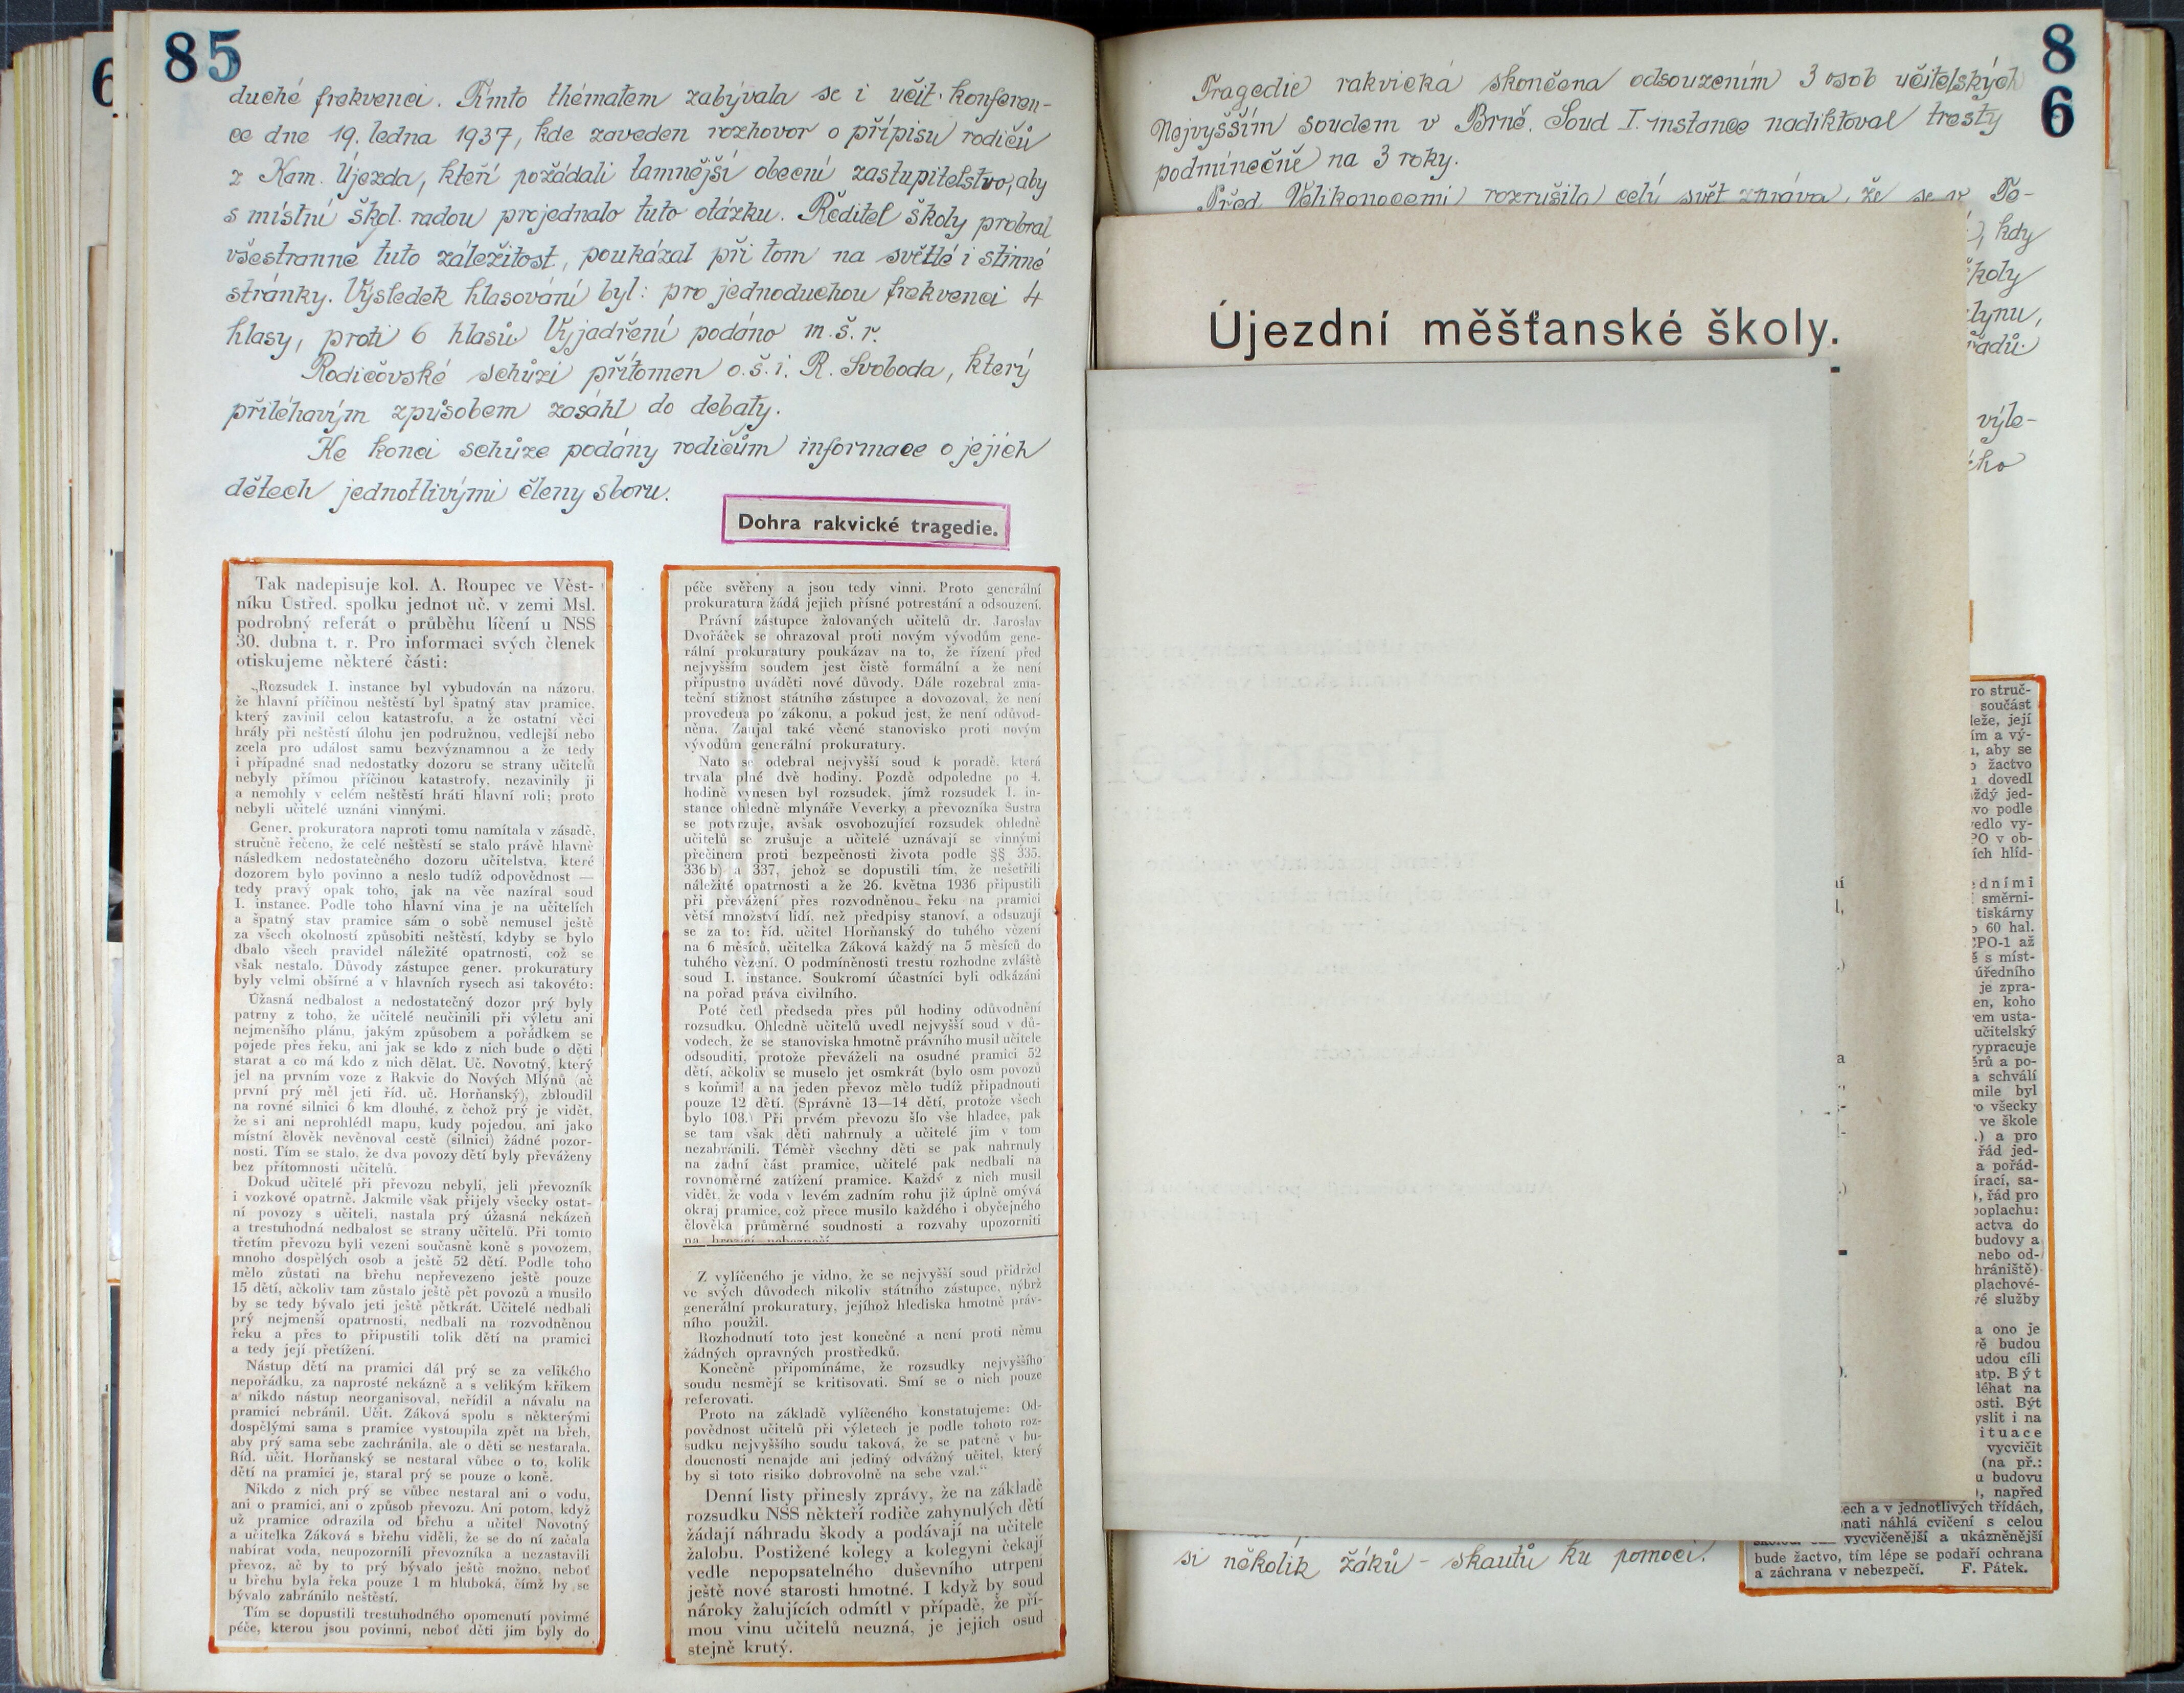 85
duché frekvenci. Tímto thématem zabývala se i učit. konferen-
ce dne 19. ledna 1937, kde zaveden rozhovor o přípisu rodičů
z Kam. Újezda, kteří požádali tamnější obecní zastupitelstvo, aby
s místní škol. radou projednalo tuto otázku. Ředitel školy probral
všestranně tuto záležitost, poukázal při tom na světlé i stinné
stránky. Výsledek hlasování byl: pro jednoduchou frekvenci 4
hlasy, proti 6 hlasů. Vyjadření podáno m.š.r.
Rodičovské schůzi přítomen o.š.i. R. Svoboda, který
přiléhavým způsobem zasáhl do debaty.
Ke konci schůze podány rodičům informace o jejich
dětech jednotlivými členy sboru.
Dohra rakvické tragedie.
Tak nadepisuje kol. A. Roupec ve Věst-
níku Ústřed. spolku jednot uč. v zemi Msl.
podrobný referát o průběhu líčení u NSS
30. dubna t. r. Pro informaci svých členek
otiskujeme některé části:
„Rozsudek I. instance byl vybudován na názoru,
že hlavní příčinou neštěstí byl špatný stav pramice,
který zavinil celou katastrofu, a že ostatní věci
hrály při neštěstí úlohu jen podružnou, vedlejší nebo
zcela pro událost samu bezvýznamnou a že tedy
i případné snad nedostatky dozoru se strany učitelů
nebyly přímou příčinou katastrofy, nezavinily ji
a nemohly v celém neštěstí hráti hlavní roli; proto
nebyli učitelé uznáni vinnými.
Gener. prokuratora naproti tomu namítala v zásadě,
stručně řečeno, že celé neštěstí se stalo právě hlavně
následkem nedostatečného dozoru učitelstva, které
dozorem bylo povinno a neslo tudíž odpovědnost —
tedy pravý opak toho, jak na věc nazíral soud
I. instance. Podle toho hlavní vina je na učitelích
a špatný stav pramice sám o sobě nemusel ještě
za všech okolností způsobiti neštěstí, kdyby se bylo
dbalo všech pravidel náležité opatrnosti, což se
však nestalo. Důvody zástupce gener. prokuratury
byly velmi obšírné a v hlavních rysech asi takovéto:
Úžasná nedbalost a nedostatečný dozor prý byly
patrny z toho, že učitelé neučinili při výletu ani
nejmenšího plánu, jakým způsobem a pořádkem se
pojede přes řeku, ani jak se kdo z nich bude o děti
starat a co má kdo z nich dělat. Uč. Novotný, který
jel na prvním voze z Rakvic do Nových Mlýnů (ač
první prý měl jeti říd. uč. Horňanský), zbloudil
na rovné silnici 6 km dlouhé, z čehož prý je vidět,
že si ani neprohlédl mapu, kudy pojedou, ani jako
místní člověk nevěnoval cestě (silnici) žádné pozor-
nosti. Tím se stalo, že dva povozy dětí byly převáženy
bez přítomnosti učitelů.
Dokud učitelé při převozu nebyli, jeli převozník
i vozkové opatrně. Jakmile však přijely všecky ostat-
ní povozy s učiteli, nastala prý úžasná nekázeň
a trestuhodná nedbalost se strany učitelů. Při tomto
třetím převozu byli vezeni současně koně s povozem,
mnoho dospělých osob a ještě 52 dětí. Podle toho
mělo zůstati na břehu nepřevezeno ještě pouze
15 dětí, ačkoliv tam zůstalo ještě pět povozů a musilo
by se tedy bývalo jeti ještě pětkrát. Učitelé nedbali
prý nejmenší opatrnosti, nedbali na rozvodněnou
řeku a přes to připustili tolik dětí na pramici
a tedy její přetížení.
Nástup dětí na pramici dál prý se za velikého
nepořádku, za naprosté nekázně a s velikým křikem
a nikdo nástup neorganisoval, neřídil a návalu na
pramici nebránil. Učit. Žáková spolu s některými
dospělými sama s pramice vystoupila zpět na břeh,
aby prý sama sebe zachránila, ale o děti se nestarala.
Říd. učit. Horňanský se nestaral vůbec o to, kolik
dětí na pramici je, staral prý se pouze o koně.
Nikdo z nich prý se vůbec nestaral ani o vodu,
ani o pramici, ani o způsob převozu. Ani potom, když
už pramice odrazila od břehu a učitel Novotný
a učitelka Žáková s břehu viděli, že se do ní začala
nabírat voda, neupozornili převozníka a nezastavili
převoz, ač by to prý bývalo ještě možno, neboť
u břehu byla řeka pouze 1 m hluboká, čímž by se
bývalo zabránilo neštěstí.
Tím se dopustili trestuhodného opomenutí povinné
péče, kterou jsou povinni, neboť děti jim byly do
péče svěřeny a jsou tedy vinni. Proto generální
prokuratura žádá jejich přísné potrestání a odsouzení.
Právní zástupce žalovaných učitelů dr. Jaroslav
Dvořáček se ohrazoval proti novým vývodům gene-
rální prokuratury poukázav na to, že řízení před
nejvyšším soudem jest čistě formální a že není
přípustno uváděti nové důvody. Dále rozebral zma-
teční stížnost státního zástupce a dovozoval, že není
provedena po zákonu, a pokud jest, že není odůvod-
něna. Zaujal také věcné stanovisko proti novým
vývodům generální prokuratury.
Nato se odebral nejvyšší soud k poradě, která
trvala plné dvě hodiny. Pozdě odpoledne po 4.
hodině vynesen byl rozsudek, jímž rozsudek I. in-
stance ohledně mlynáře Veverky a převozníka Šustra
se potvrzuje, avšak osvobozující rozsudek ohledně
učitelů se zrušuje a učitelé uznávají se vinnými
přečinem proti bezpečnosti života podle §§ 335,
336 b) a 337, jehož se dopustili tím, že nešetřili
náležité opatrnosti a že 26. května 1936 připustili
při převážení přes rozvodněnou řeku na pramici
větší množství lidí, než předpisy stanoví, a odsuzují
se za to: říd. učitel Horňanský do tuhého vězení
na 6 měsíců, učitelka Žáková každý na 5 měsíců do
tuhého vězení. O podmíněnosti trestu rozhodne zvláště
soud I. instance. Soukromí účastníci byli odkázáni
na pořad práva civilního.
Poté četl předseda přes půl hodiny odůvodnění
rozsudku. Ohledně učitelů uvedl nejvyšší soud v dů-
vodech, že se stanoviska hmotně právního musil učitele
odsouditi, protože převáželi na osudné pramici 52
dětí, ačkoliv se muselo jet osmkrát (bylo osm povozů
s koňmi! a na jeden převoz mělo tudíž připadnouti
pouze 12 dětí. (Správně 13—14 dětí, protože všech
bylo 108.) Při prvém převozu šlo vše hladce, pak
se tam však děti nahrnuly a učitelé jim v tom
nezabránili. Téměř všechny děti se pak nahrnuly
na zadní část pramice, učitelé pak nedbali na
rovnoměrné zatížení pramice. Každý z nich musil
vidět, že voda v levém zadním rohu již úplně omývá
okraj pramice, což přece musilo každého i obyčejného
člověka průměrné soudnosti a rozvahy upozorniti
na hrozící nebezpečí.
Z vylíčeného je vidno, že se nejvyšší soud přidržel
ve svých důvodech nikoliv státního zástupce, nýbrž
generální prokuratury, jejíhož hlediska hmotně práv-
ního použil.
Rozhodnutí toto jest konečné a není proti němu
žádných opravných prostředků.
Konečně připomínáme, že rozsudky nejvyššího
soudu nesmějí se kritisovati. Smí se o nich pouze
referovati.
Proto na základě vylíčeného konstatujeme: Od-
povědnost učitelů při výletech je podle tohoto roz-
sudku nejvyššího soudu taková, že se patrně v bu-
doucnosti nenajde ani jediný odvážný učitel, který
by si toto risiko dobrovolně na sebe vzal.“
Denní listy přinesly zprávy, že na základě
rozsudku NSS někteří rodiče zahynulých dětí
žádají náhradu škody a podávají na učitele
žalobu. Postižené kolegy a kolegyni čekají
vedle nepopsatelného duševního utrpení
ještě nové starosti hmotné. I když by soud
nároky žalujících odmítl v případě, že pří-
mou vinu učitelů neuzná, je jejich osud
stejně krutý.
86
Tragedie rakvická skončena odsouzením 3 osob učitelských
Nejvyšším soudem v Brně. Soud I. instance nadiktoval tresty
podmínečně na 3 roky.
Před Velikonocemi rozrušila celý svět zpráva, že se v Te-
kdy
školy
lynu,
řadů.
výle-
ého
Újezdní měšťanské školy.
ro struč-
součást
leže, její
ím a vý-
, aby se
žactvo
dovedl
ždý jed-
vo podle
edlo vy-
PO v ob-
ích hlíd-
edními
směrni-
tiskárny
60 hal.
CPO-1 až
s míst-
úředního
je zpra-
en, koho
rem usta-
učitelský
vypracuje
ěrů a po-
a schválí
mile byl
o všecky
ve škole
.) a pro
řád jed-
a pořád-
írací, sa-
), řád pro
poplachu:
actva do
budovy a
nebo od-
hrániště)
plachové-
vé služby
a ono je
vě budou
udou cíli
atp. Být
léhat na
osti. Být
yslit i na
ituace
vycvičit
(na př.:
u budovu
), napřed
ech a v jednotlivých třídách,
nati náhlá cvičení s celou
vycvičenější a ukázněnější
bude žactvo, tím lépe se podaří ochrana
a záchrana v nebezpečí. F. Pátek.
si několik žáků - skautů ku pomoci.